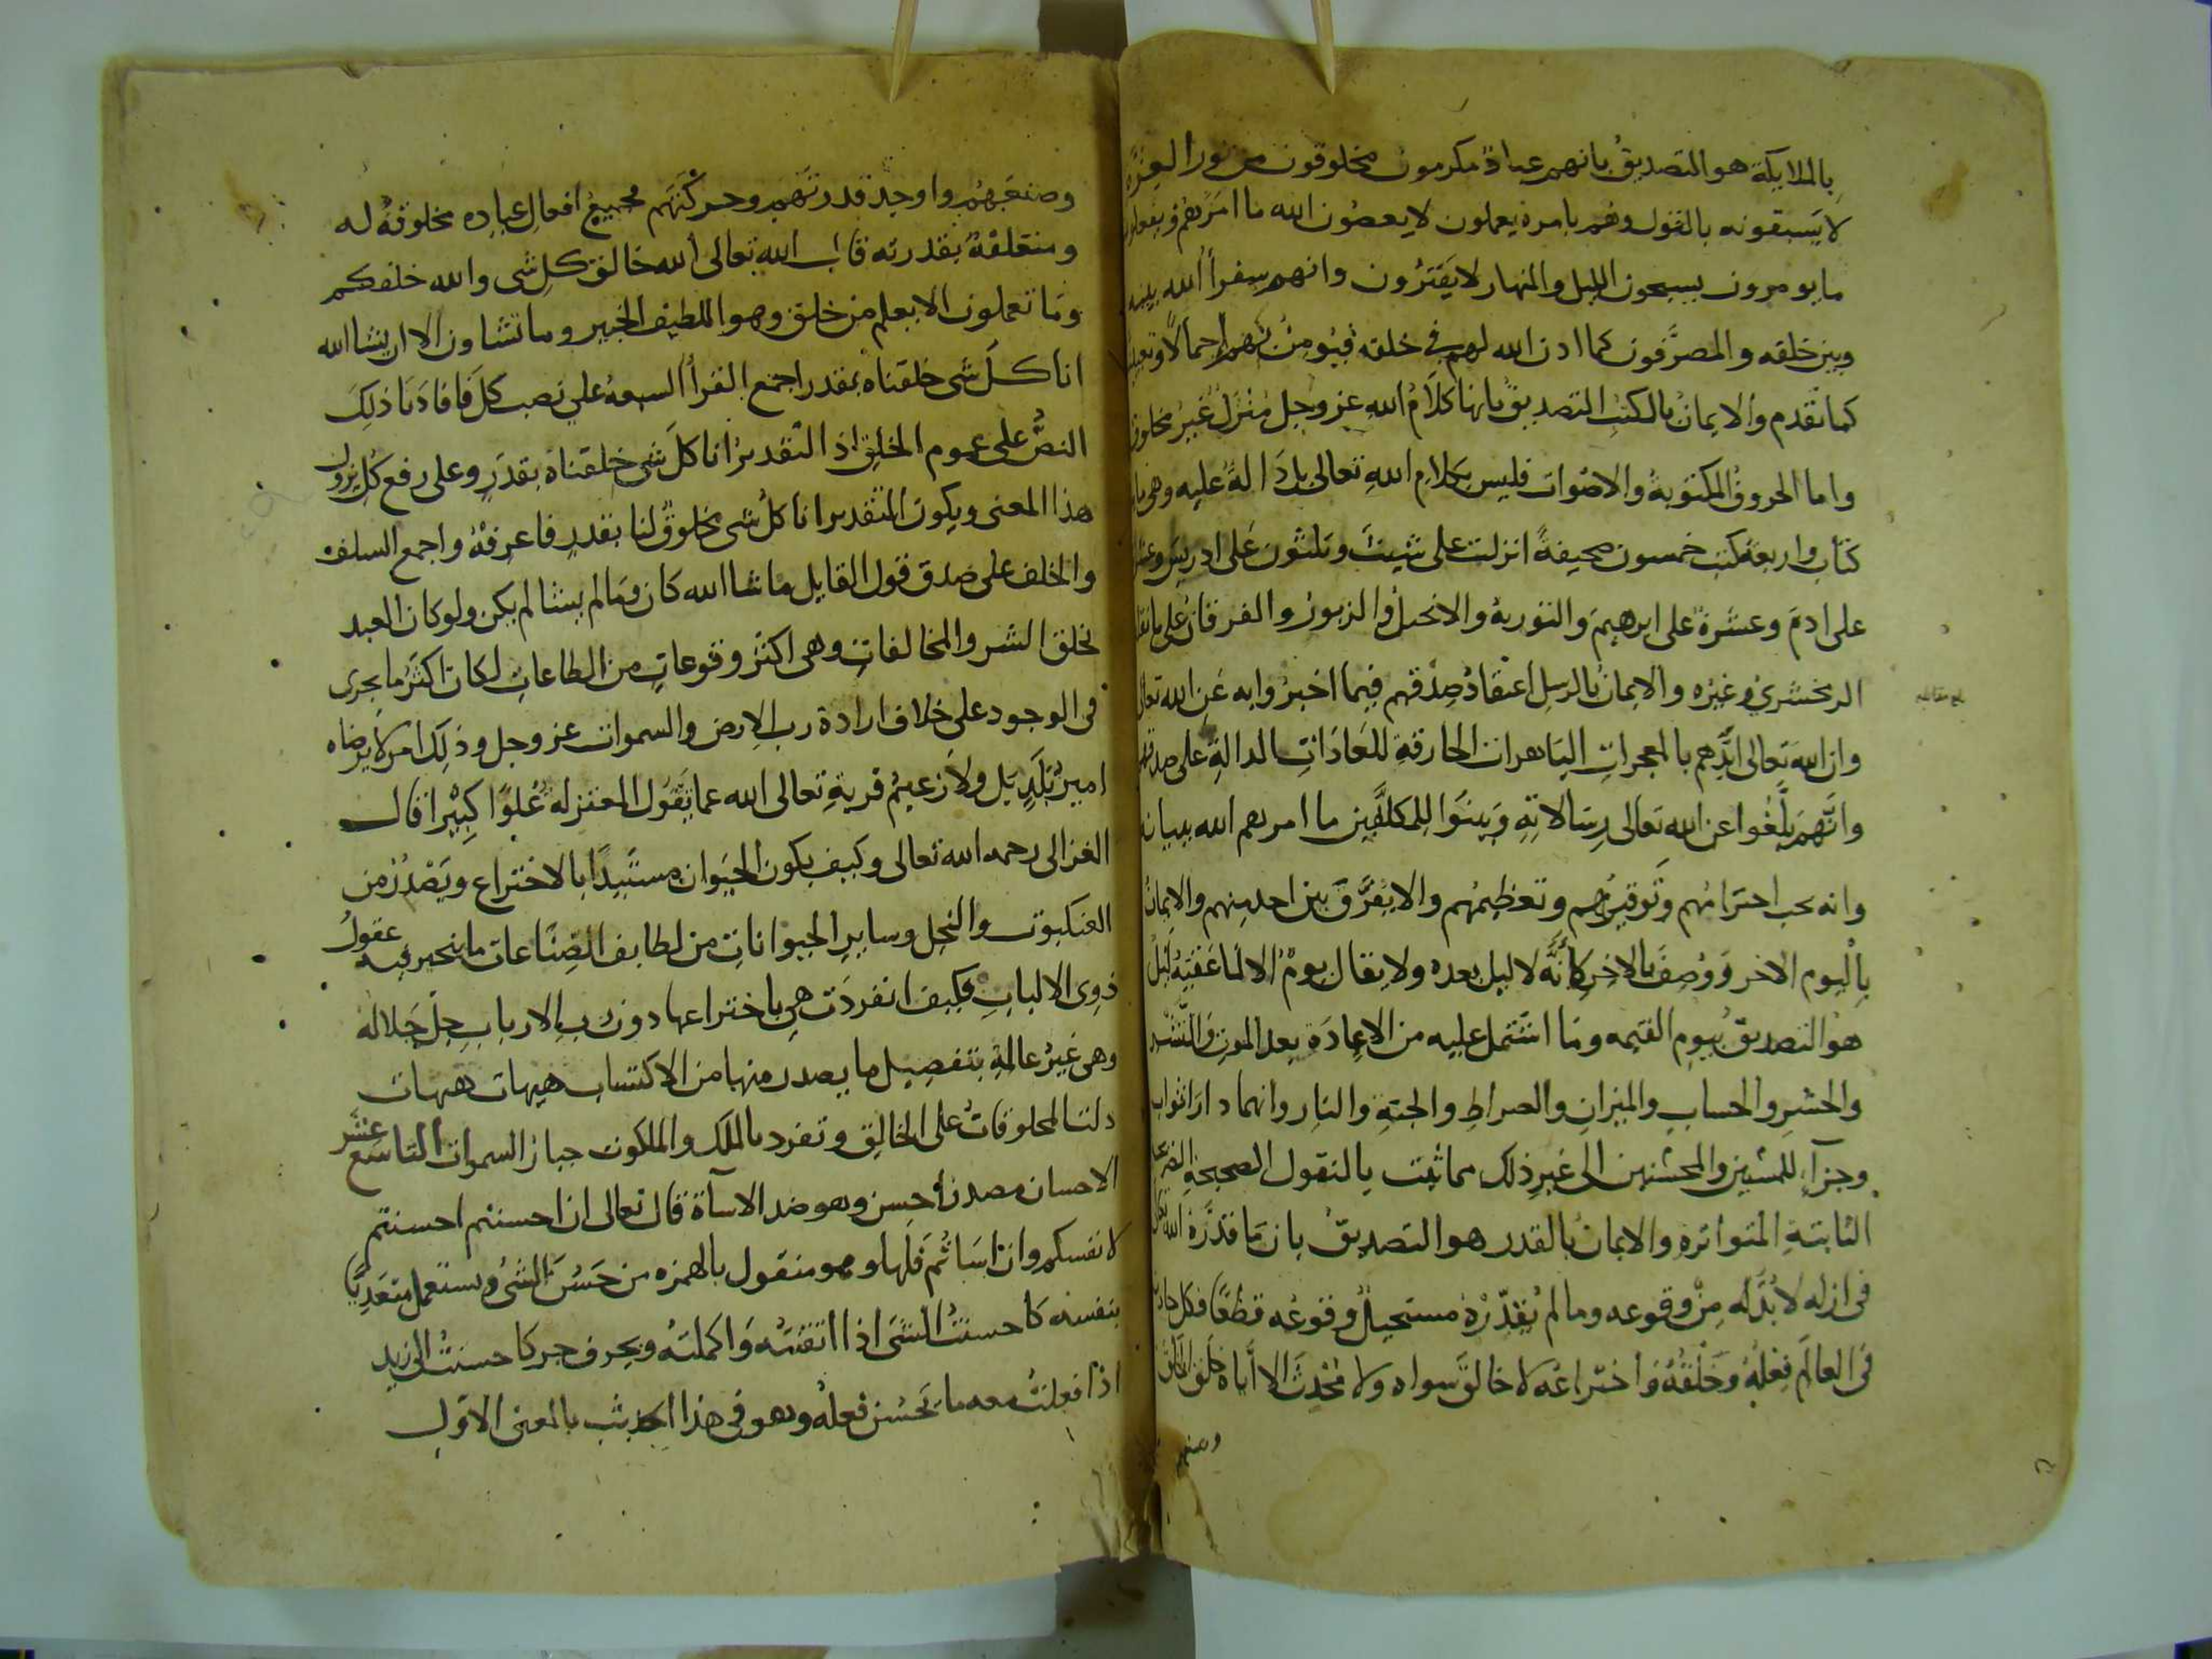 بالملايكة هو التصديق بانهم عباد مكرمون مخلوقون من نور العزة
لا يسبقونه بالقول وهم بامره يعملون لا يعصون الله ما امرهم ويفعلون
ما يومرون يسبحون الليل والنهار لا يفترون وانهم سفرا الله بينه
وبين خلقه والمصرفون كما اذن الله لهم في خلقه فيومن بهم اجمالا
كما تقدم والايمان بالكتب التصديق بانها كلام الله عز وجل منزل غير مخلوق
واما الحروف المكتوبة والاصوات فليس بكلام الله تعالى بل دالة عليه وهى
كتاب واربعة كتب خمسون صحيفة انزلت على شيث وثلثون على ادريس وعشر
على ادم وعشرة على ابرهيم والتورية والانجيل والزبور والفرقان على ما نقل
الزمخشري وغيره والايمان بالرسل اعتقاد صدقهم فيما اخبروا به عن الله تعالى
وان الله تعالى ايدهم بالمعجزات الباهرات الخارقة للعادات الدالة على صدقهم
وانهم بلغوا عن الله تعالى رسالاته وبينوا للمكلفين ما امرهم الله ببيانه
وانه يجب احترامهم وتوقيرهم وتعظيمهم والا يفرق بين احد منهم والايمان
باليوم الاخر ووصف بالاخر لانه لا ليل بعده ولا يقال يوم الا لما عقبه ليل
هو التصديق بيوم القيمه وما اشتمل عليه من الاعادة بعد الموت والنشر
والحشر والحساب والميزان والصراط والجنة والنار وانهما دارا ثواب
وجزآء للمسيين والمحسنين الى غير ذلك مما ثبت بالنقول الصحيحة
الثابتة المتواتره والايمان بالقدر هو التصديق بان ما قدره الله تعالى
فى ازله لا بد له من وقوعه وما لم يقدره مستحيل وقوعه قطعا فكل حادث
فى العالم فعله وخلقه واختراعه لا خالق سواه ولا محدث الا اياه خلق الخلق
وصنعهم
وصنعهم واوجد قدرتهم وحركتهم فجميع افعال عباده مخلوقة له
ومتعلقة بقدرته قال الله تعالى الله خالق كل شى والله خلقكم
وما تعملون الا يعلم من خلق وهو اللطيف الخبير وما تشاون الا ان يشا الله
انا كل شى خلقناه بقدر اجمع القرا السبعة على نصب كل فافادنا ذلك
النص على عموم الخلق اذ التقدير انا كل شى خلقناه بقدر وعلى رفع كل يزول
هذا المعنى ويكون التقدير انا كل شى مخلوق لنا بقدر فاعرفه واجمع السلف
والخلف على صدق قول القايل ما شا الله كان وما لم يشا لم يكن ولو كان العبد
يخلق الشر والمخالفات وهى اكثر وقوعا من الطاعات لكان اكثر ما يجرى
فى الوجود على خلاف ارادة رب الارض والسموات عز وجل وذلك امر لا يرضاه
امير بلد بل ولا زعيم قرية تعالى الله عما يقول المعتزله علوا كبيرا قال
الغزالى رحمه الله تعالى وكيف يكون الحيوان مستبدا بالاختراع ويصدر من
العنكبوت والنحل وساير الحيوانات من لطايف الصناعات ما يتحير فيه عقول
ذوى الالباب فكيف انفردت هى باختراعها دون رب الارباب جل جلاله
وهى غير عالمة بتفصيل ما يصدر منها من الاكتساب هيهات هيهات
دلت المخلوقات على الخالق وتفرد بالملك والملكوت جبار السموات التاسع عشر
الاحسان مصدر احسن وهو ضد الاسآة قال تعالى ان احسنتم احسنتم
لانفسكم وان اساتم فلها وهو منقول بالهمزه من حسن الشى ويستعمل متعديا
بنفسه كاحسنت الشى اذا اتقنته واكملته وبحرف جر كاحسنت الى زيد
اذا فعلت معه ما يحسن فعله وهو فى هذا الحديث بالمعنى الاول